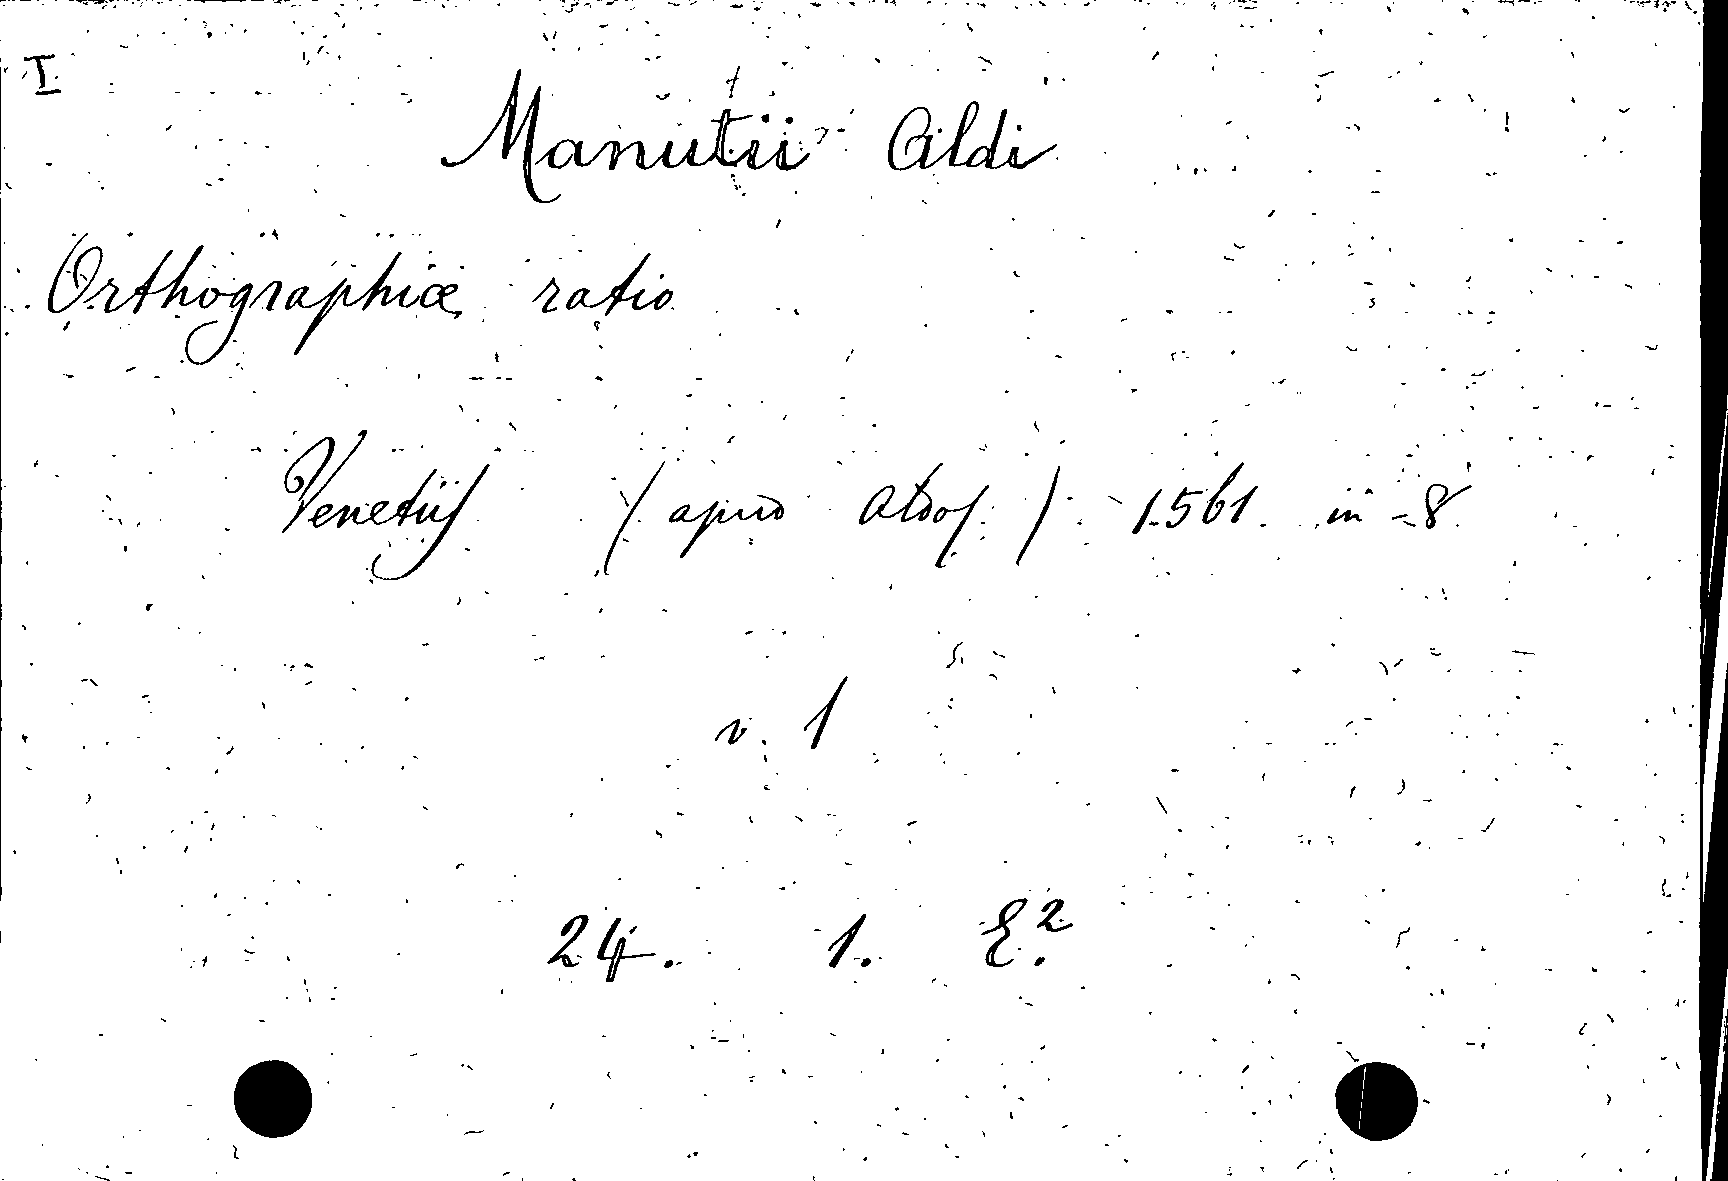 I
Manutii Aldi
Orthographiæ ratio
Venetiis (apud Aldos) 1561. in-8
v. 1
24. 1. E.²